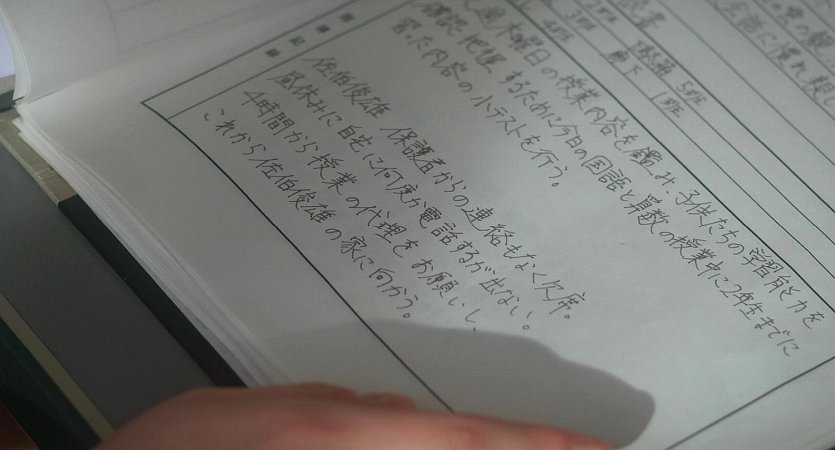 5班
廊下 1班
週木曜日の授業内容を鑑み、子供たちの学習能力を
確認、把握するために今日の国語と算数の授業中に2年生までに
習った内容の小テストを行う。
佐伯俊雄 保護者からの連絡もなく欠席。
昼休みに自宅に何度か電話するが出ない。
4時間から授業の代理をお願いし、
これから佐伯俊雄の家に向かう。
記